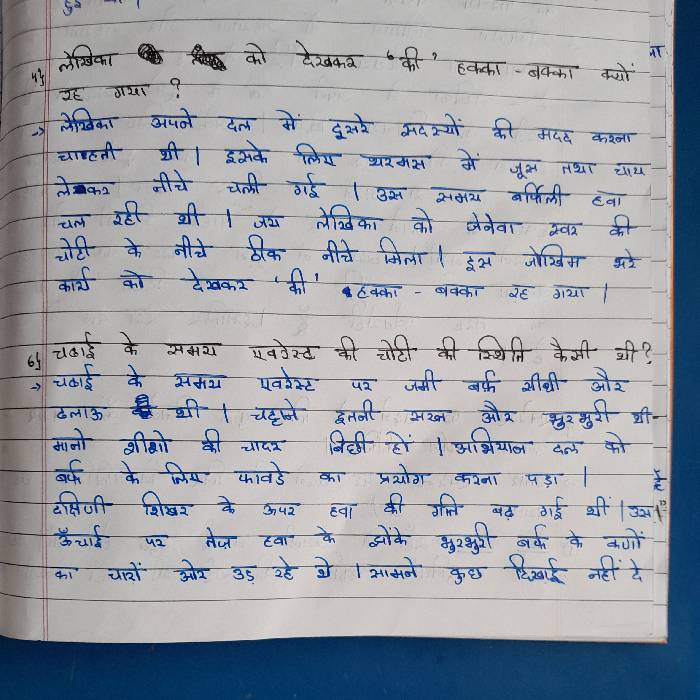 हुई थी।
५} लेखिका को देखकर 'की' हक्का - बक्का क्यों
रह गया ?
→ लेखिका अपने दल में दूसरे सदस्यों की मदद करना
चाहती थी | इसके लिए थरमस में जूस तथा चाय
लेकर नीचे चली गई | उस समय बर्फिली हवा
चल रही थी | जय लेखिका को जेनेवा स्वर की
चोटी के नीचे ठीक नीचे मिला | इस जोखिम भरे
कार्य को देखकर 'की' हक्का - बक्का रह गया |
6} चढाई के समय एवरेस्ट की चोटी की स्थिति कैसी थी?
→ चढाई के समय एवरेस्ट पर जमी बर्फ सीधी और
ढलाऊ थी | चट्टाने इतनी सख्त और भुरभुरी थी
मानो शीशो की चादर बिछी हों | अभियान दल को
बर्फ के लिए फावडे का प्रयोग करना पड़ा |
दक्षिणी शिखर के ऊपर हवा की गति बढ़ गई थीं | उस
ऊँचाई पर तेज़ हवा के झोंके भुरभुरी बर्फ के कणों
का चारों ओर उड़ रहे थे | सामने कुछ दिखाई नहीं दे